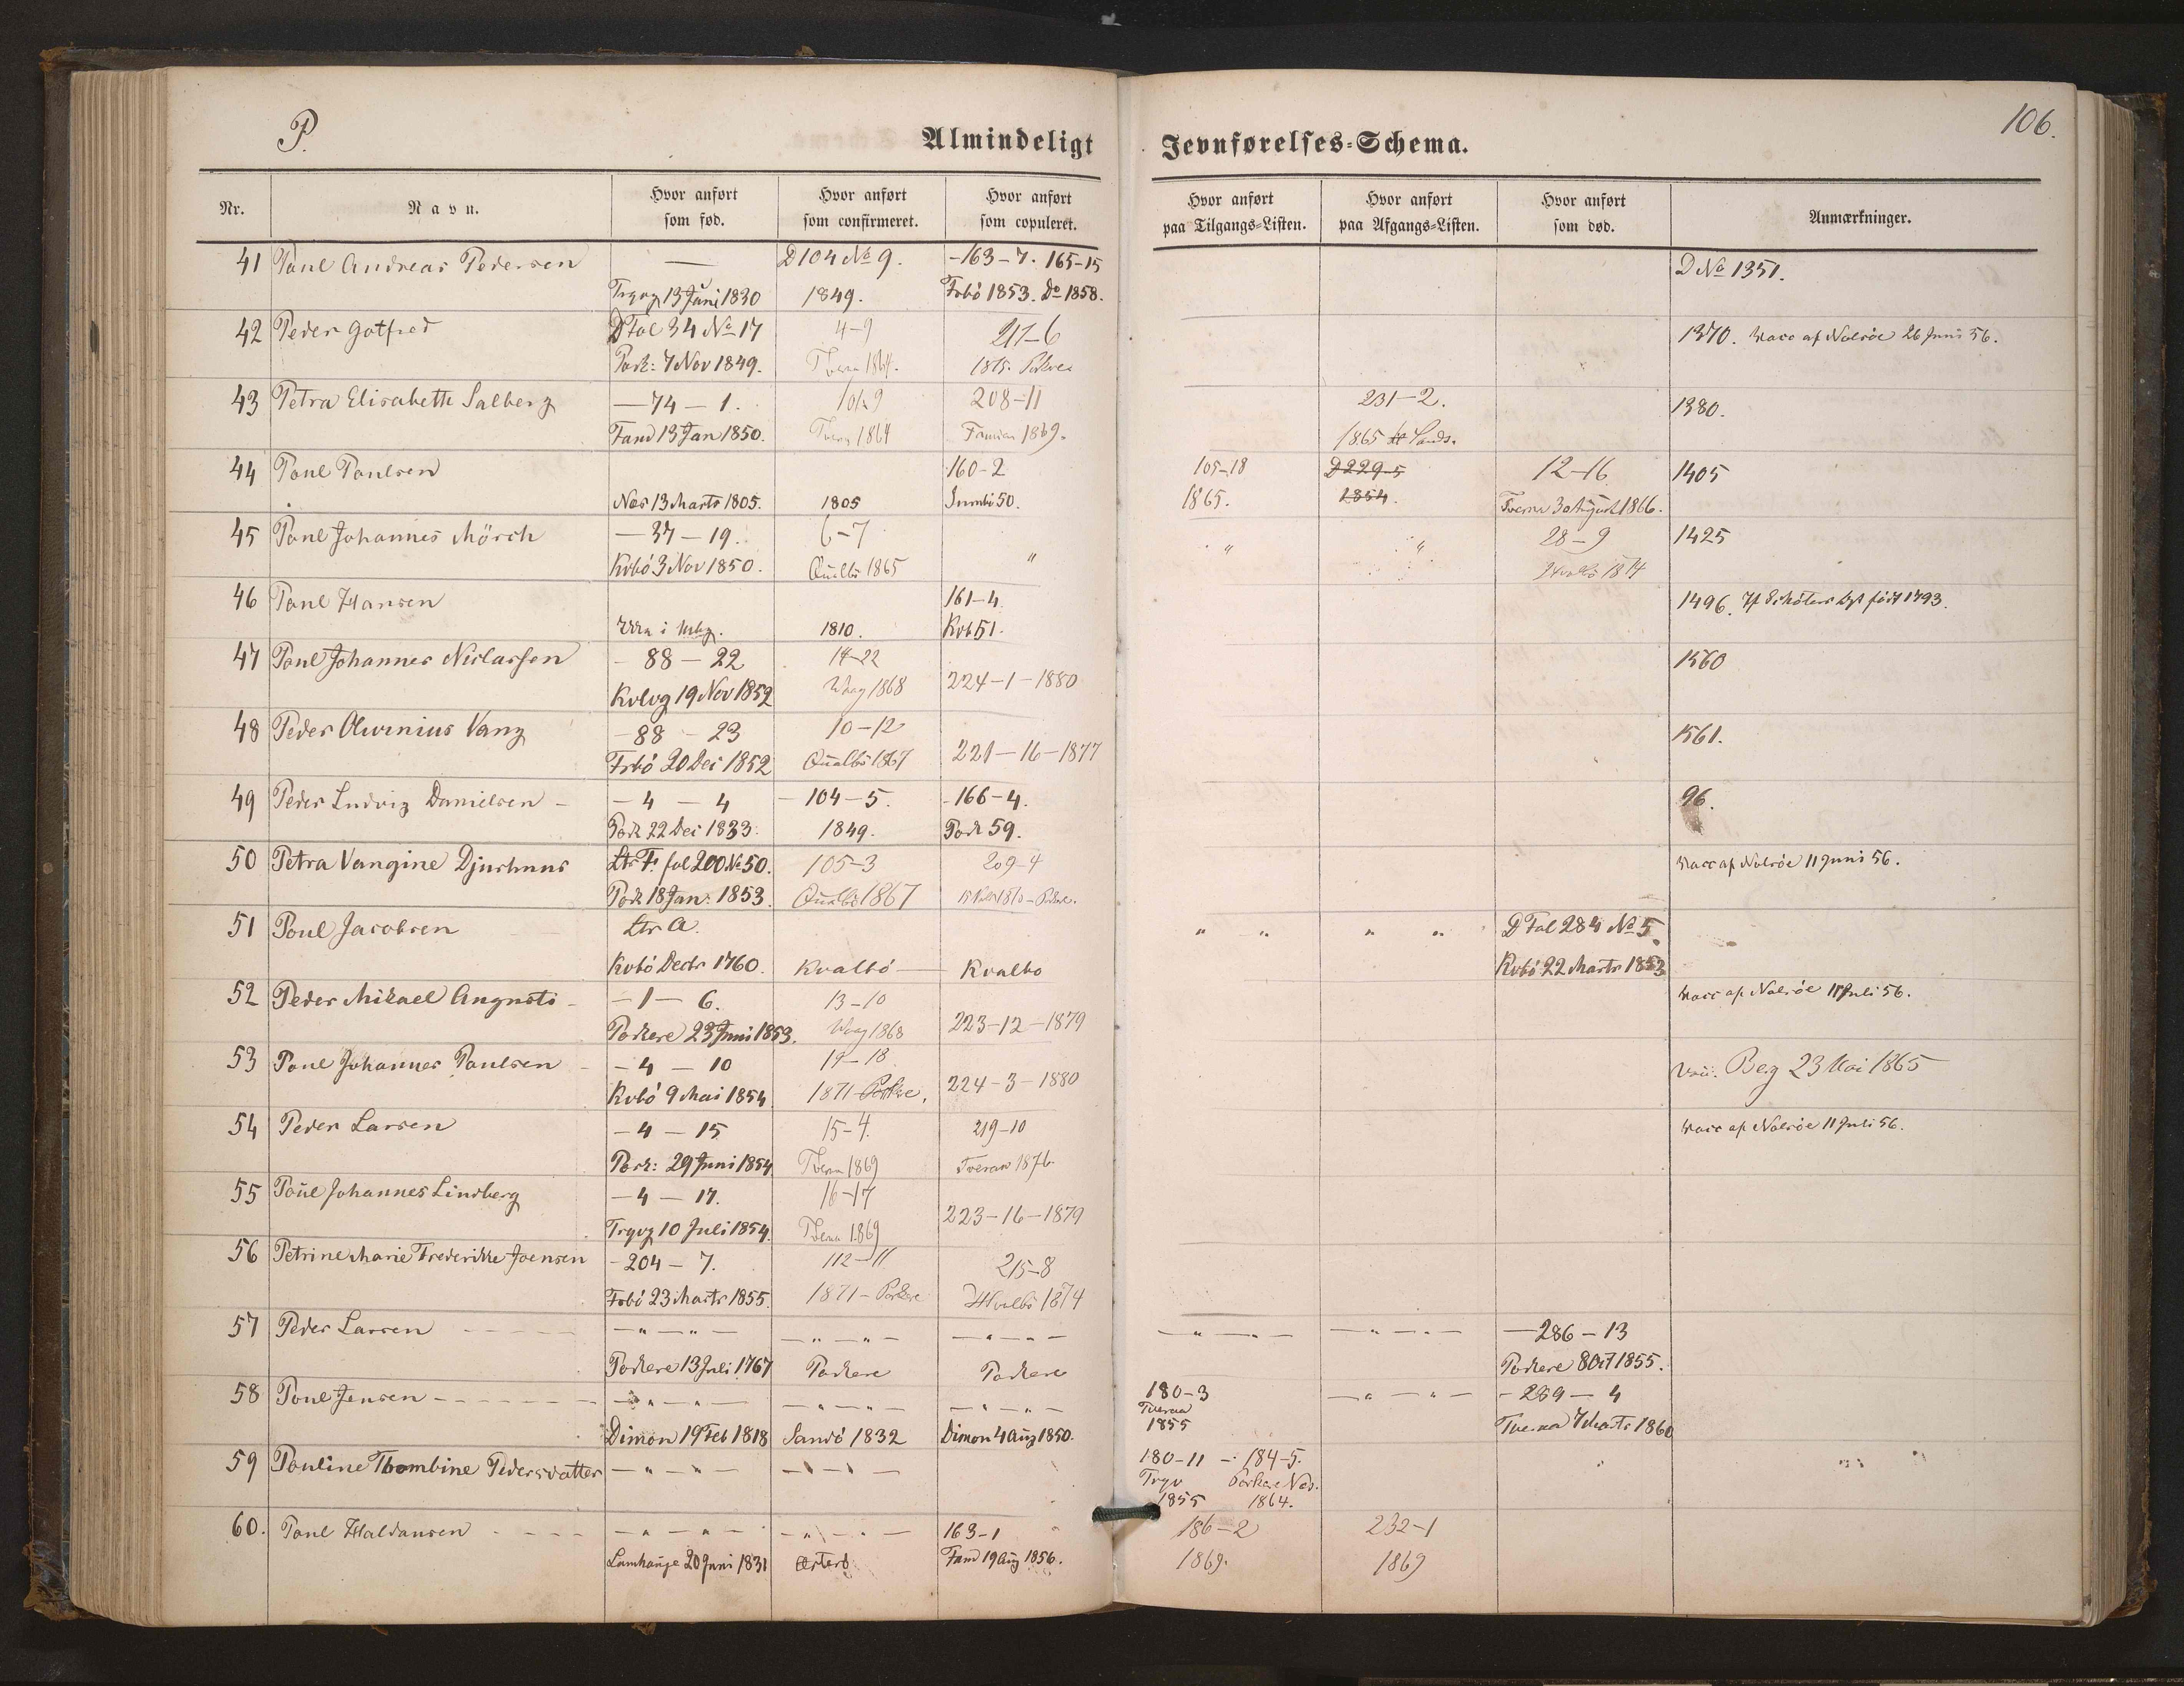 P.
106.
Almindeligt Jevnførelses-Schema.
Nr. Navn. Hvor anført som fød. Hvor anført som confirmeret. Hvor anført som copuleret. Hvor anført paa Tilgangs-Listen. Hvor anført paa Afgangs-Listen. Hvor anført som død. Anmærkninger.
41 Poul Andreas Pedersen — D 104 No 9. -163-7. 165-15 D No 1351.
13 Juni 1830 1849. Frbö 1853. Do 1858.
42 Peder Gotfred D Fol 34 No 17 4-9 217-6 1370. Vacc af Nolsöe 26 Juni 56.
Pork: 7 Nov 1849. 1864. 1875.
43 Petra Elisabeth Salberg — 74 — 1. 208-11 231-2. 1380.
Famd 13 Jan 1850. 1864 1869. 1865
44 Poul Poulsen 160-2 105-18 D 229-5 12-16 1405
Næs 13 Marts 1805. 1805 Sumbö 50. 1865. 1854. 3 August 1866.
45 Poul Johannes Mörch — 37 — 19. 6-7 28-9 1425
Kvbö 3 Nov 1850. Qualbö 1865 " " "
46 Poul Hansen 161-4 1496.
1810. Kvb 51.
47 Poul Johannes Niclassen - 88 — 22 14-22 224-1-1880 1560
Kvlvg 19 Nov 1852 Waag 1868
48 Peder Oluvinius Vang -88 - 23 10-12 221-16-1877 1561.
Frbö 20 Dec 1852 Qualbö 1867
49 Peder Ludvig Danielsen — 4 — 4 - 104-5. - 166-4. 96.
Pork 22 Dec 1833. 1849. Pork 59.
50 Petra Vangine Djurhuus Ltr F. fol 200 No 50. 105-3 209-4 Vacc af Nolsöe 11 Juni 56.
Pork 18 Jan: 1853. Qualbö 1867
51 Poul Jacobsen Ltr A. " " " " D Fol 284 No 5.
Kvbö Decbr 1760. Kvalbö — Kvalbo Kvbö 22 Marts 1853
52 Peder Mikael Augusti - — 1 — 6. 13-10 223-12-1879 Vacc af Nolsöe 11 Juli 56.
Porkere 23 Juni 1853. Waag 1868
53 Poul Johannes Poulsen - 4 — 10 19-18 224-3-1880 Beg 23 Mai 1865
Kvbö 9 Mai 1854 1871 Porkere.
54 Peder Larsen — 4 — 15 15-4. 219-10 Vacc af Nolsöe 11 Juli 56.
Pork: 29 Juni 1854 Tveraa 1869 Tveraa 1876
55 Poul Johannes Lindberg — 4 — 17. 16-17 223-16-1879
10 Juli 1854. Tveraa 1869
56 Petrine Marie Frederikke Joensen - 204 — 7. 112-11 215-8
Frbö 23 Marts 1855. 1871 - Porkere Hvalbö 1874
57 Peder Larsen — " — " — — " — " — — " — " — — " — " — — " — " — — 286 — 13
Porkere 13 Juli 1767 Porkere Porkere Porkere 8 Oct 1855.
58 Poul Jensen — " — " — — " — " — — " — " — 180-3 — " — " — - 289 — 4
Dimon 19 Feb 1818 Sandö 1832 Dimon 4 Aug 1850. Tveraa 1855 Tveraa 7 Marts 1860
59 Pouline Thombine Pedersdatter — " — " — — " — " — 180-11 - 184-5.
1855 1864.
60. Poul Haldansen — " — " — — " — " — 163-1 186-2 232-1
20 Juni 1831 Famd 19 Aug 1856. 1869. 1869